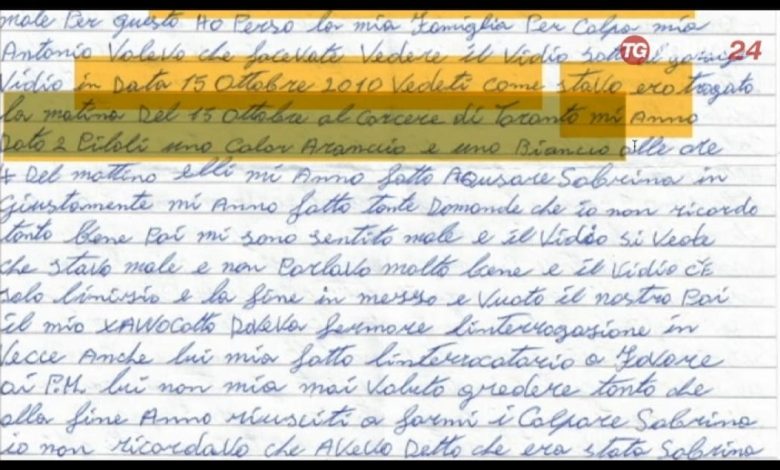 male Per questo Ho Perso la mia Famiglia Per Colpa mia
Antonio Valeva che facevate Vedere il Vidio
TG 24
Vidio in Data 15 Ottobre 2010 Vedeti come stavo ero trogato
la matina Del 15 Ottobre al Carcere di Taranto mi Anno
Dato 2 Piloli uno Color Arancio e uno Biancio alle ore
7 Del mattino elli mi Anno fatto Aqusare Sabrina in
Giustamente mi Anno fatto tante Domande che io non ricordo
tanto bene Poi mi sono sentito male e il Vidio si Vede
che stavo male e non Parlavo molto bene e il Vidio c'È
solo linisio e la fine in messo e Vuoto il nostro Poi
il mio XAWOCATO Doveva fermare linterrogasione in
Vecce Anche lui mia fatto linterrocatorio a Favare
ai P.M. lui non mia mai Voluto gredere tanto che
alla fine Anno riusciti a farmi i Colpare Sabrina
io non ricordavo che AVevo Detto che era stata Sabrina